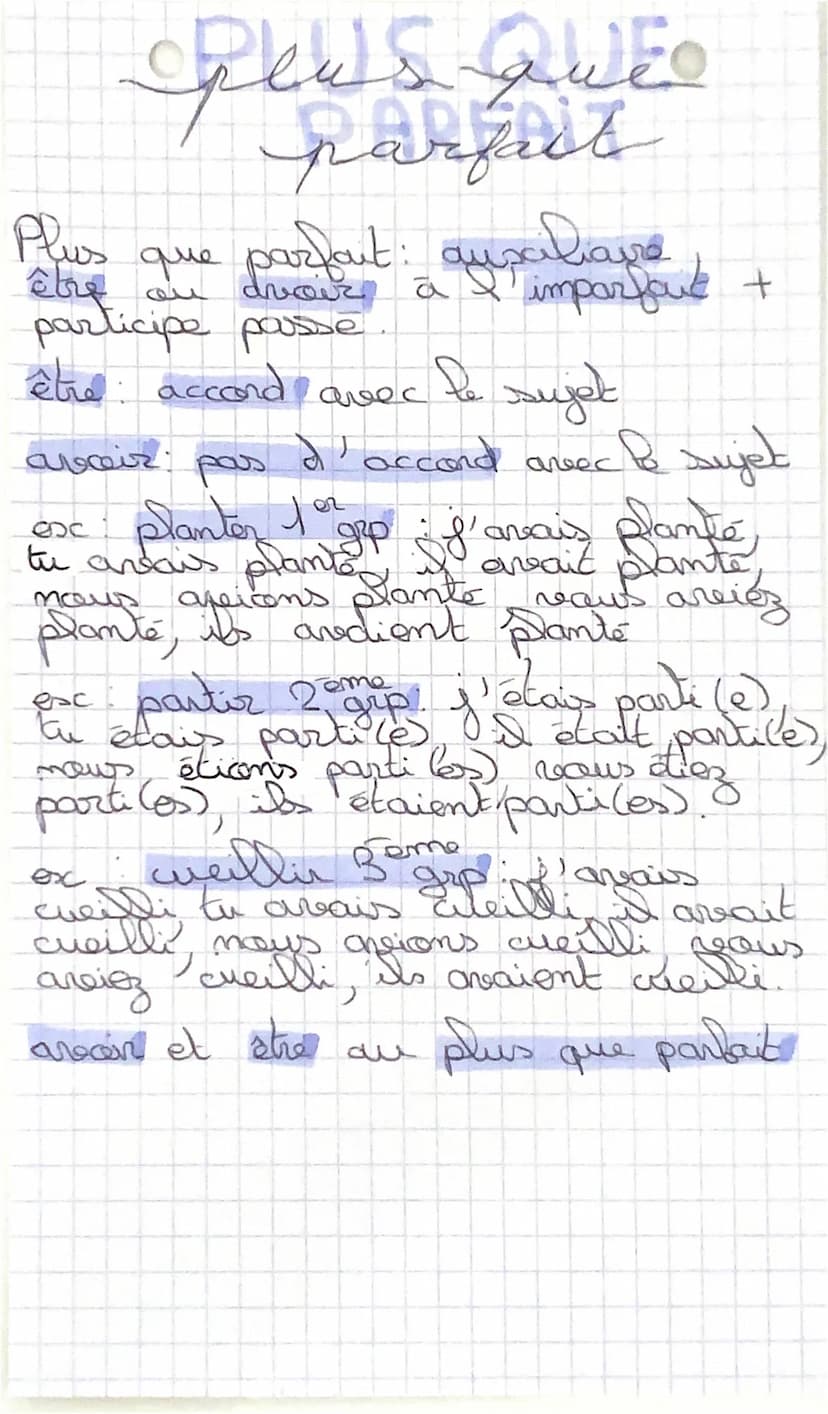 PLUS QUE
PARFAIT
plus que
parfait
Plus que parfait : auxiliaire
être ou avoir à l'imparfait +
participe passé.
être : accord avec le sujet
avoir : pas d'accord avec le sujet
ex : planter 1er grp : j'avais planté,
tu avais planté, il avait planté,
nous avions planté, vous aviez
planté, ils avaient planté
ex : partir 2ème grp : j'étais parti(e),
tu étais parti(e), il était parti(e),
nous étions parti(es) vous étiez
parti(es), ils étaient parti(es).
ex : cueillir 3ème grp : j'avais
cueilli, tu avais cueilli, il avait
cueilli, nous avions cueilli, vous
aviez cueilli, ils avaient cueilli.
avoir et être au plus que parfait